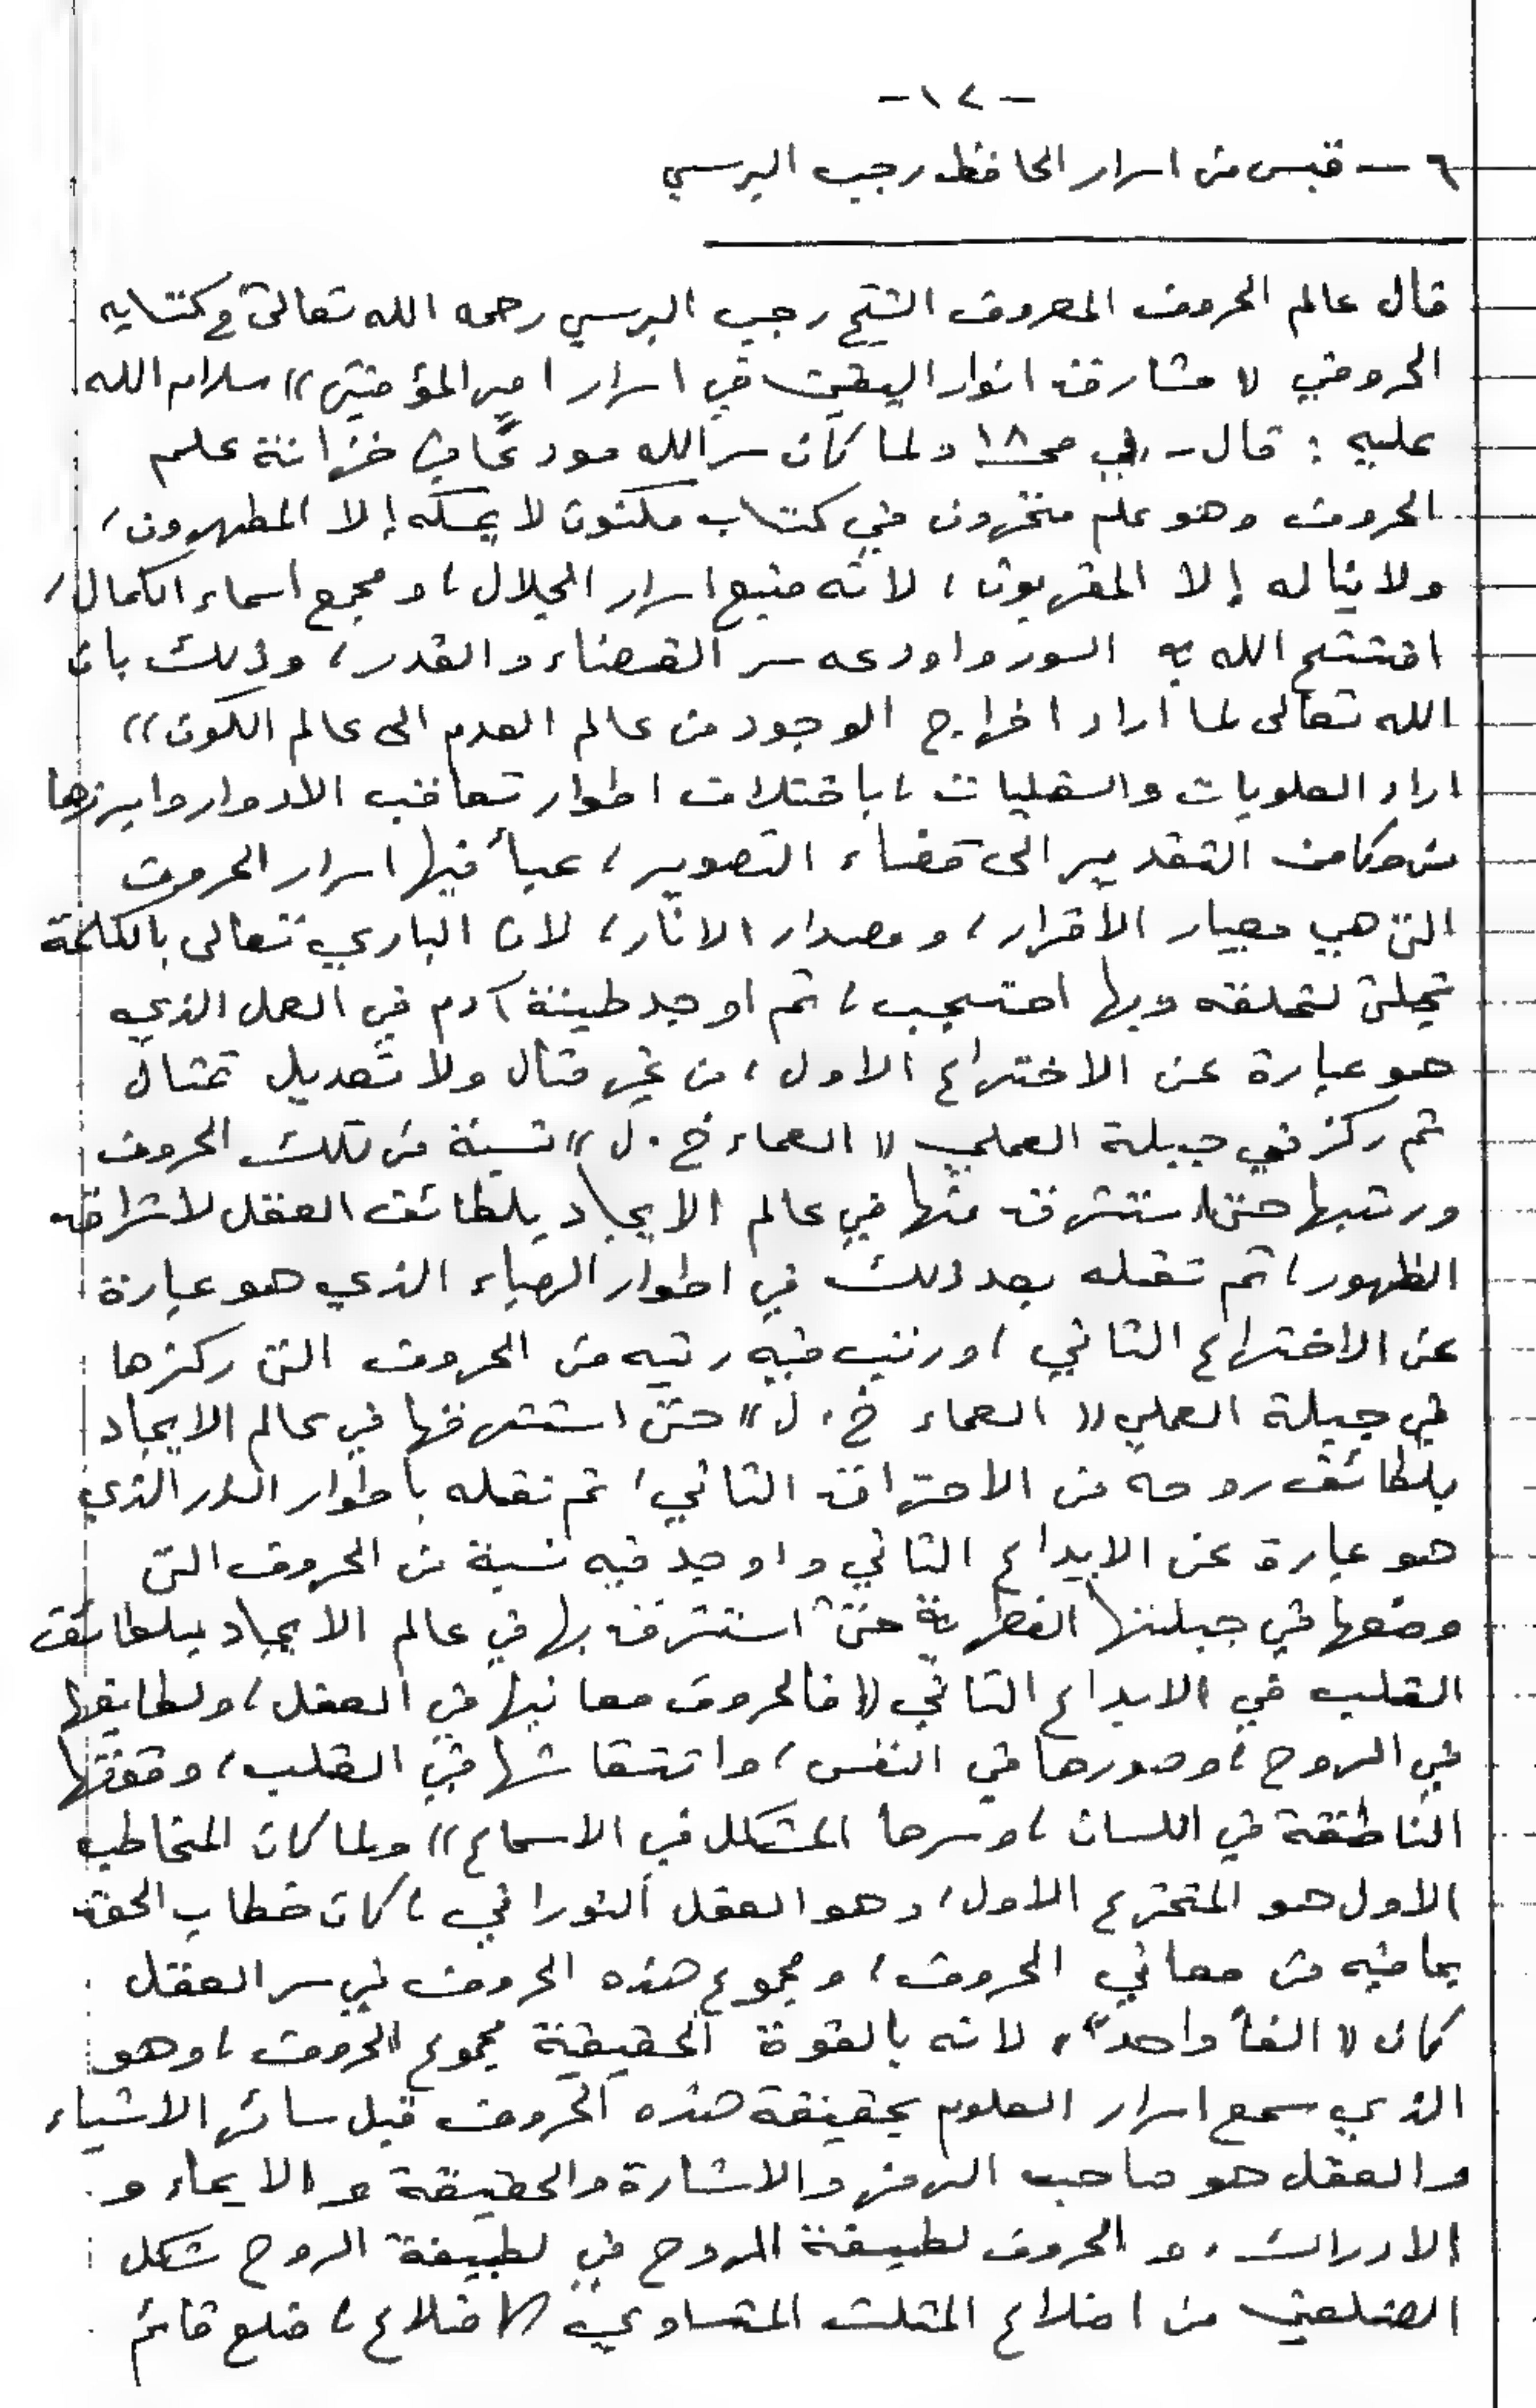 -١٤-
٦ — قبس من اسرار الحافظ رجب البرسي
قال عالم الحروف المعروف الشيخ رجب البرسي رحمه الله تعالى في كتابه
الحروفي « مشارق انوار اليقين في اسرار امير المؤمنين » سلام الله
عليه : قال - في ص١٨ ولما كان سر الله مودعًا في خزانة علم
الحروف وهو علم مخزون في كتاب مكنون لا يمسه إلا المطهرون ،
ولا يناله إلا المقربون ، لانه منبع اسرار الجلال ، ومجمع اسماء الكمال ،
افتتح الله به السور واودعه سر القضاء والقدر ، وذلك بان
الله تعالى لما اراد اخراج الوجود من عالم العدم الى عالم الكون »
اراد العلويات والسفليات ، باختلاف اطوار تعاقب الادوار وابرزها
من مكامن التقدير الى قضاء التصوير ، عبأ فيها اسرار الحروف
التي هي معيار الأقرار ، ومصدار الاثار ، لان الباري تعالى بالكلمة
تجلى لخلقه وبها احتجب ، ثم اوجد طينة آدم في العمل الذي
هو عبارة عن الاختراع الاول ، من غير مثال ولا تعديل تمثال
ثم ركز في جبلة العملي « العماء خ . ل » نسبة من تلك الحروف
ورتبها حتى استشرق منها في عالم الايجاد بلطائف العقل لاشراق
الظهور ، ثم نقله بعد ذلك في اطوار الهباء الذي هو عبارة
عن الاختراع الثاني ، ورتب فيه رتبه من الحروف التي ركزها
في جبلة العملي « العماء خ . ل » حتى استشرفها في عالم الايجاد
بلطائف روحه من الاختراق الثاني ، ثم نقله باطوار الذر الذي
هو عبارة عن الابداع الثاني واوجد فيه نسبة من الحروف التي
وضعها في جبلتها الفطرية حتى استشرف بها في عالم الايجاد بلطائف
القلب في الابداع الثاني « فالحروف معانيها في العقل ، ولطايفها
في الروح ، وصورها في النفس ، وانتقاشها في القلب ، وقوتها
الناطقة في اللسان ، وسرها المشكل في الاسماع » ولما كان المخاطب
الاول هو المخترع الاول ، وهو العقل النوراني ، كان خطاب الحق
بما فيه من معاني الحروف ، ومجموع هذه الحروف في سر العقل
كان « الفأ واحد » ، لانه بالقوة الحقيقية مجموع الحروف ، وهو
الذي سمع اسرار العلوم بحقيقة هذه الحروف قبل سائر الاشياء
والعقل هو صاحب الرمز والاشارة والحقيقة والايماء و
الادراك ، و الحروف لطيفة الروح في لطيفة الروح شكل
الضلعين من اضلاع المثلث المتساوي الاضلاع ، ضلع قائم